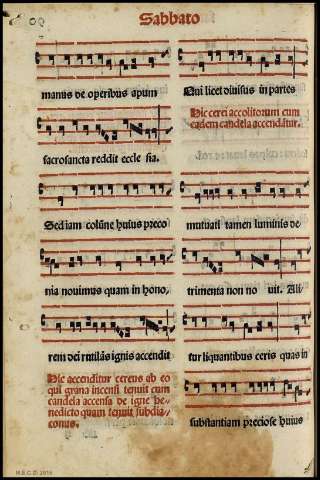 Sabbato
manus de operibus apum
sacrosancta reddit eccle sia.
Sed iam colūne huius preco
nia nouimus quam in hono,
rem dei rutilās ignis accendit
Hic accenditur cereus ab eo
qui grana incensi tenuit cum
candela accensa de igne be-
nedicto quam tenuit subdia-
conus.
Qui licet diuisus in partes
Hic cerei accolitorum cum
eadem candela accendātur.
mutuati tamen luminis de
trimenta non no uit. Ali
tur liquantibus ceris quas in
substantiam preciose huius